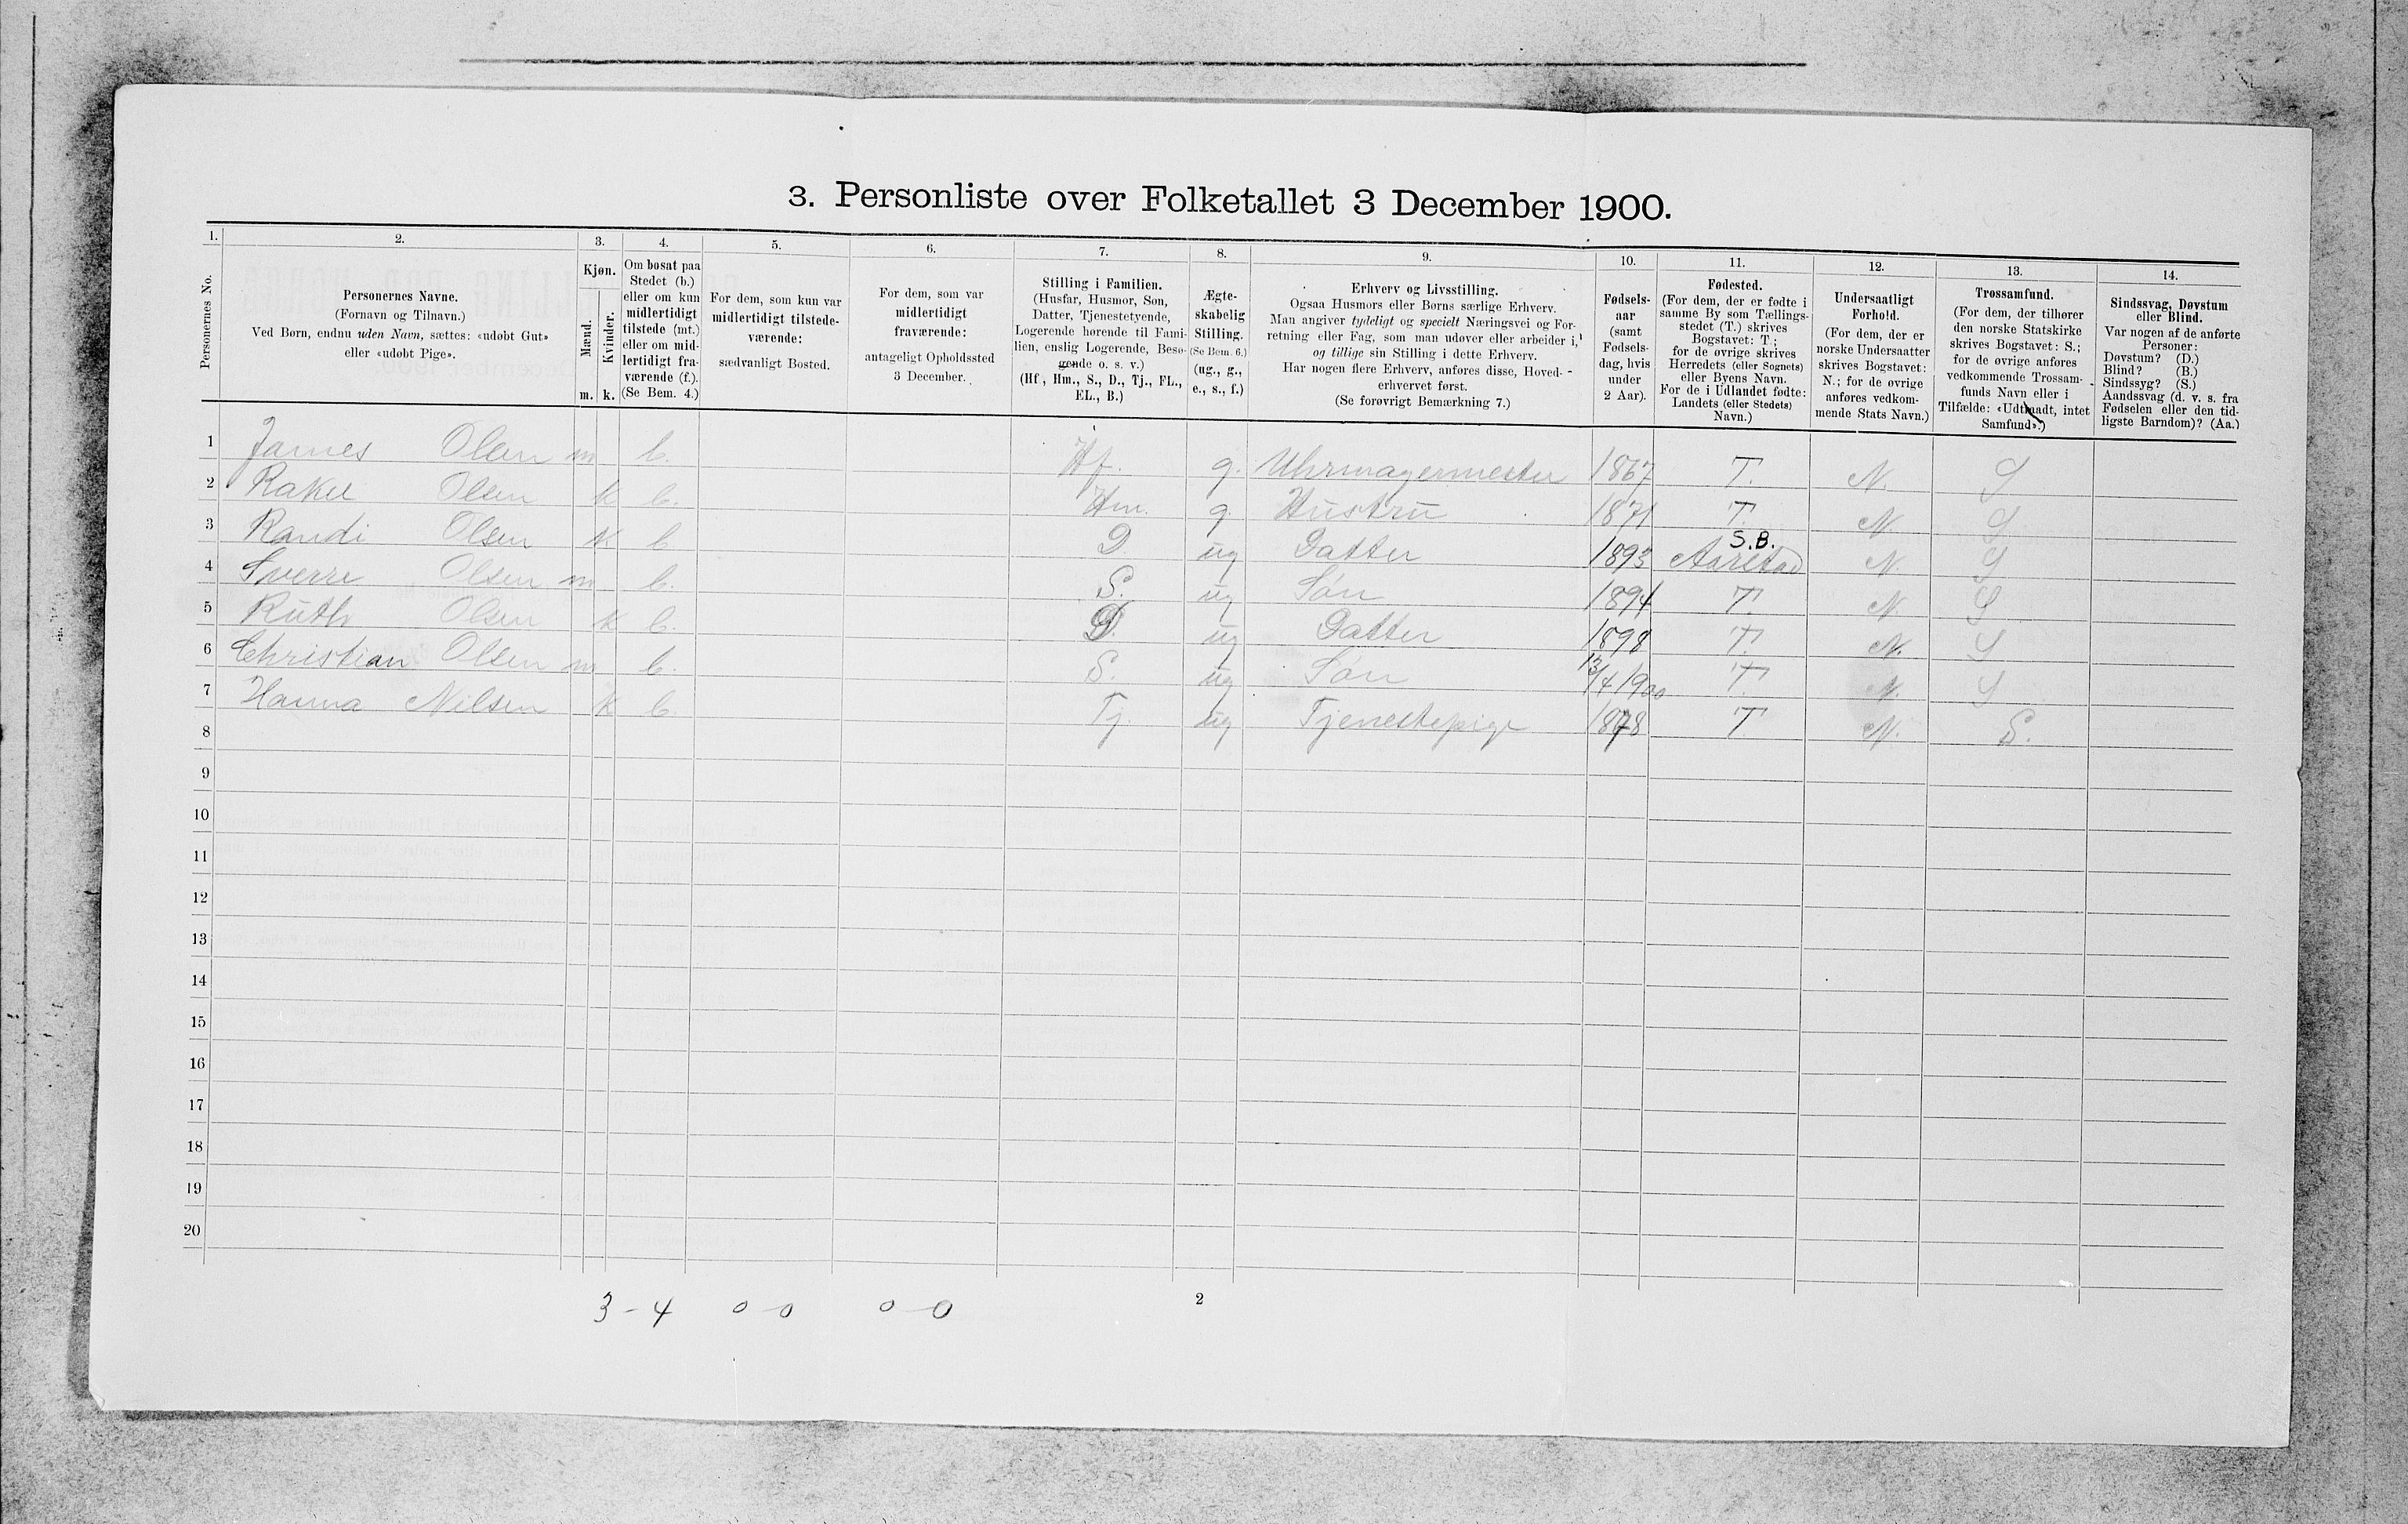 3. Personliste over Folketallet 3 December 1900.
1. 2. 3. 4. 5. 6. 7. 8. 9. 10. 11. 12. 13. 14.
Personernes No.
Personernes Navne.
(Fornavn og Tilnavn.)
Ved Børn, endnu uden Navn, sættes: «udøbt Gut»
eller «udøbt Pige».
Kjøn.
Mænd.
Kvinder.
m. k.
Om bosat paa
Stedet (b.)
eller om kun
midlertidigt
tilstede (mt.)
eller om mid-
lertidigt fra-
værende (f.).
(Se Bem. 4.)
For dem, som kun var
midlertidigt tilstede-
værende:
sædvanligt Bosted.
For dem, som var
midlertidigt
fraværende:
antageligt Opholdssted
3 December.
Stilling i Familien.
(Husfar, Husmor, Søn,
Datter, Tjenestetyende,
Logerende hørende til Fami-
lien, enslig Logerende, Besø-
gende o. s. v.)
(Hf., Hm., S., D., Tj., FL.,
EL., B.)
Ægte-
skabelig
Stilling.
(Se Bem. 6.)
(ug., g.,
e., s., f.)
Erhverv og Livsstilling.
Ogsaa Husmors eller Børns særlige Erhverv.
Man angiver tydeligt og specielt Næringsvei og For-
retning eller Fag, som man udøver eller arbeider i,
og tillige sin Stilling i dette Erhverv.
Har nogen flere Erhverv, anføres disse, Hoved-
erhvervet først.
(Se forøvrigt Bemærkning 7.)
Fødsels-
aar
(samt
Fødsels-
dag, hvis
under
2 Aar).
Fødested.
(For dem, der er fødte i
samme By som Tællings-
stedet (T.) skrives
Bogstavet: T;
for de øvrige skrives
Herredets (eller Sognets)
eller Byens Navn.
For de i Udlandet fødte:
Landets (eller Stedets)
Navn.)
Undersaatligt
Forhold.
(For dem, der er
norske Undersaatter
skrives Bogstavet:
N.; for de øvrige
anføres vedkom-
mende Stats Navn.)
Trossamfund.
(For dem, der tilhører
den norske Statskirke
skrives Bogstavet: S.;
for de øvrige anføres
vedkommende Trossam-
funds Navn eller i
Tilfælde: «Udtraadt, intet
Samfund».)
Sindssvag, Døvstum
eller Blind.
Var nogen af de anførte
Personer:
Døvstum? (D.)
Blind? (B.)
Sindssyg? (S.)
Aandssvag (d. v. s. fra
Fødselen eller den tid-
ligste Barndom)? (Aa.)
1 James Olsen m b. Hf. g. Uhrmagermester 1867 T. N. S
2 Rakel Olsen k b. Hm. g. Hustru 1871 T. N. S
3 Randi Olsen k b. D ug Datter 1893 S.B. Aarstad N. S
4 Sverre Olsen m b. S. ug Søn 1894 T N. S
5 Ruth Olsen k b. D. ug Datter 1898 T. N. S
6 Christian Olsen m b. S. ug Søn 13/4 1900 T. N. S
7 Hanna Nilsen k b. Tj. ug Tjenestepige 1878 T N. S.
8
9
10
11
12
13
14
15
16
17
18
19
20
3-4 0-0 0-0
2